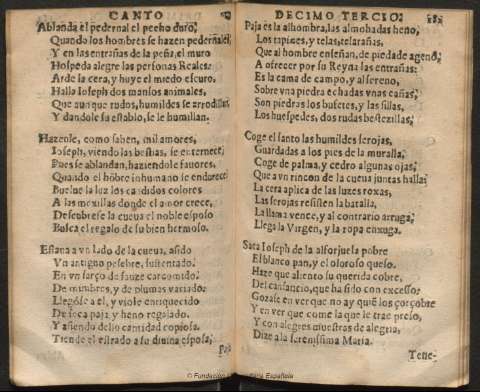 CANTO
Ablanda el pedernal el pecho duro,
Quando los hombres se hazen pedernales,
Y en las entrañas de la peña, el muro
Hospeda alegre las personas Reales:
Arde la cera, y huye el miedo escuro,
Halla Ioseph dos mansos animales,
Que aunque rudos, humildes se arrodillan
Y dandole su establo, se le humillan.
Hazenle, como saben, mil amores,
Ioseph, viendo las bestias, se enternece,
Pues se ablandan, haziendole fauores,
Quando el hõbre inhumano se endurece:
Buelue la luz los cãdidos colores
A las mexillas donde el amor crece,
Descubrese la cueua el noble esposo
Busca el regalo de su bien hermoso.
Estaua a vn lado de la cueua, asido
Vn antiguo pesebre, sustentado,
En vn sarço de sauze carcomido,
De mimbres, y de plumas variado:
Llegose a el, y violo enriquecido
De seca paja, y heno regalado,
Y asiendo dello cantidad copiosa,
Tiende el estrado a su diuina esposa,
Paja
DECIMO TERCIO.
Paja es la alhombra, las almohadas heno,
Los tapices, y telas, telarañas,
Que al hombre enseñan, de piedad ageno,
A ofrecer por su Reyna las entrañas:
Es la cama de campo, y al sereno,
Sobre vna piedra echadas vnas cañas,
Son piedras los bufetes, y las sillas,
Los huespedes, dos rudas bestezillas,
Coge el santo las humildes serojas,
Guardadas a los pies de la muralla,
Coge de palma, y cedro algunas ojas,
Que a vn rincon de la cueua juntas halla:
La cera aplica de las luzes roxas,
Las serojas resisten la batalla,
La llama vence, y al contrario arruga,
Llega la Virgen, y la ropa enxuga.
Saca Ioseph de la alforjuela pobre
El blanco pan, y el oloroso queso,
Haze que aliento su querida cobre,
Del cansancio, que ha sido con excesso:
Gozase en ver que no ay quiẽ los çoçobre
Y en ver que come la que le trae preso,
Y con alegres muestras de alegria,
Dize a la serenissima Maria.
Tene-
© Fundación Española